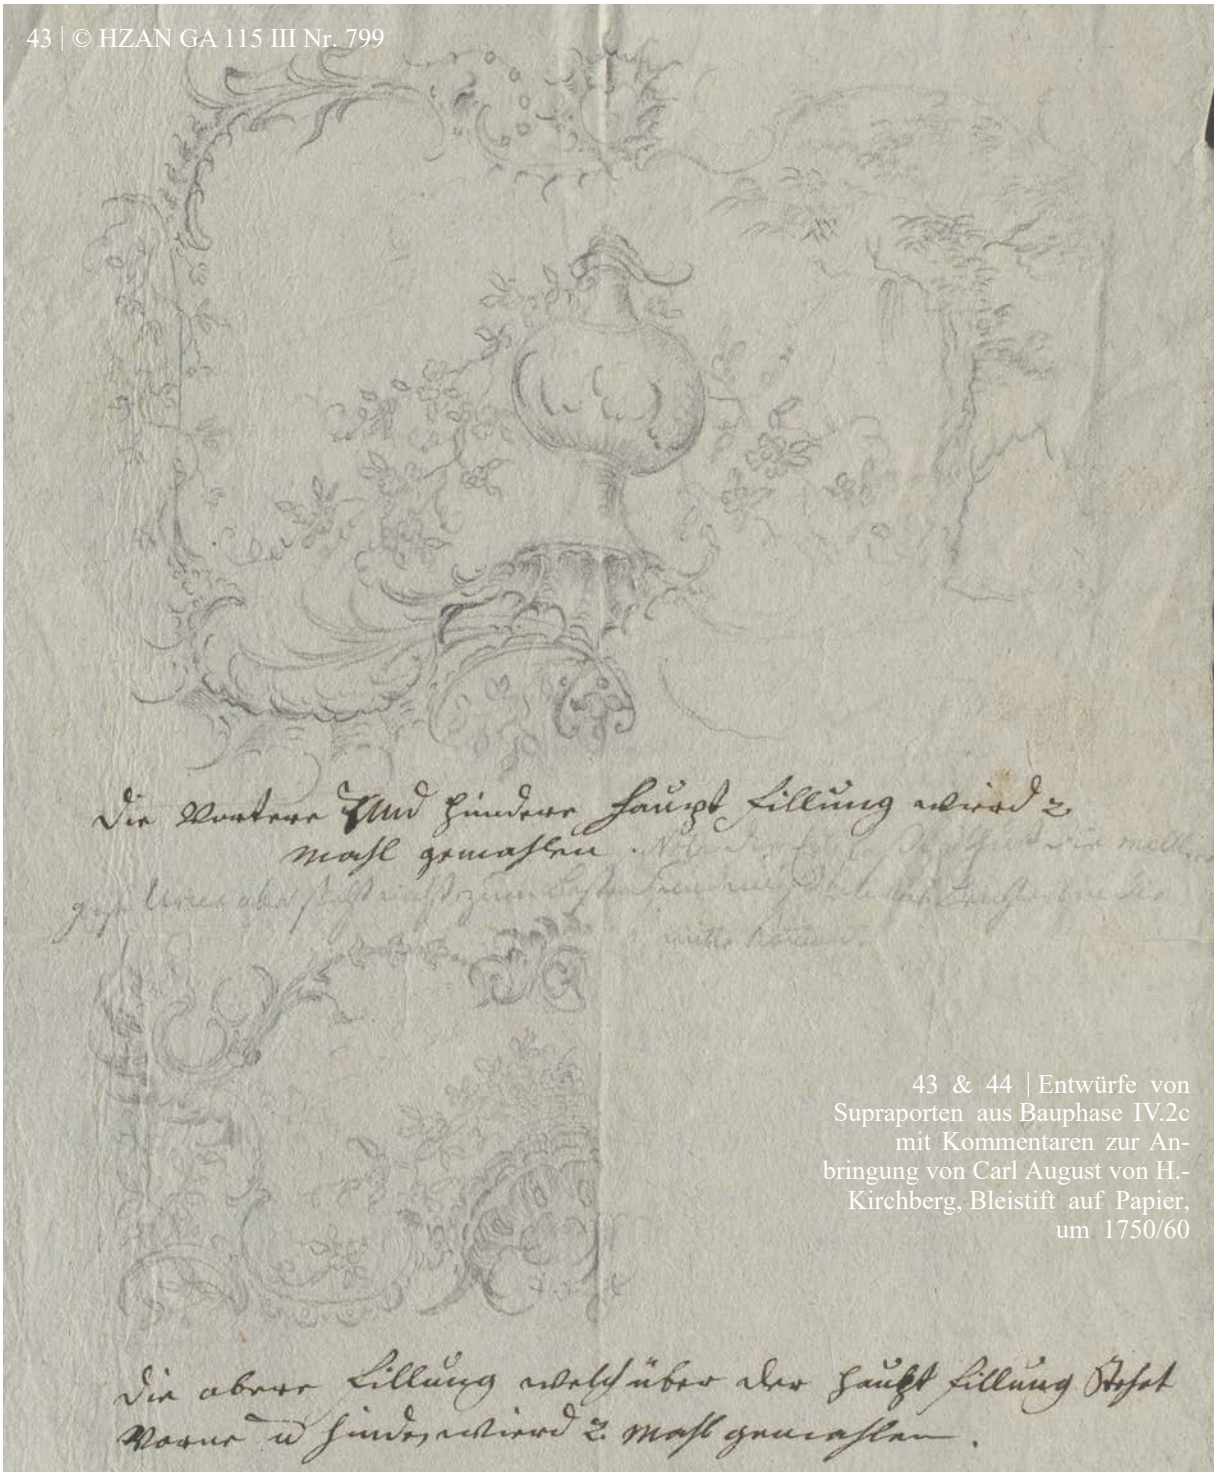 43 | © HZAN GA 115 III Nr. 799
Die Vortere Und hindere haupt fillung wierd 2
mahl gemahlen.
43 & 44 | Entwürfe von
Supraporten aus Bauphase IV.2c
mit Kommentaren zur An-
bringung von Carl August von H.-
Kirchberg, Bleistift auf Papier,
um 1750/60
Die obere fillung welch über der haubt fillung Stehet
Vorne u hinde, wierd 2 mahl gemahlen.